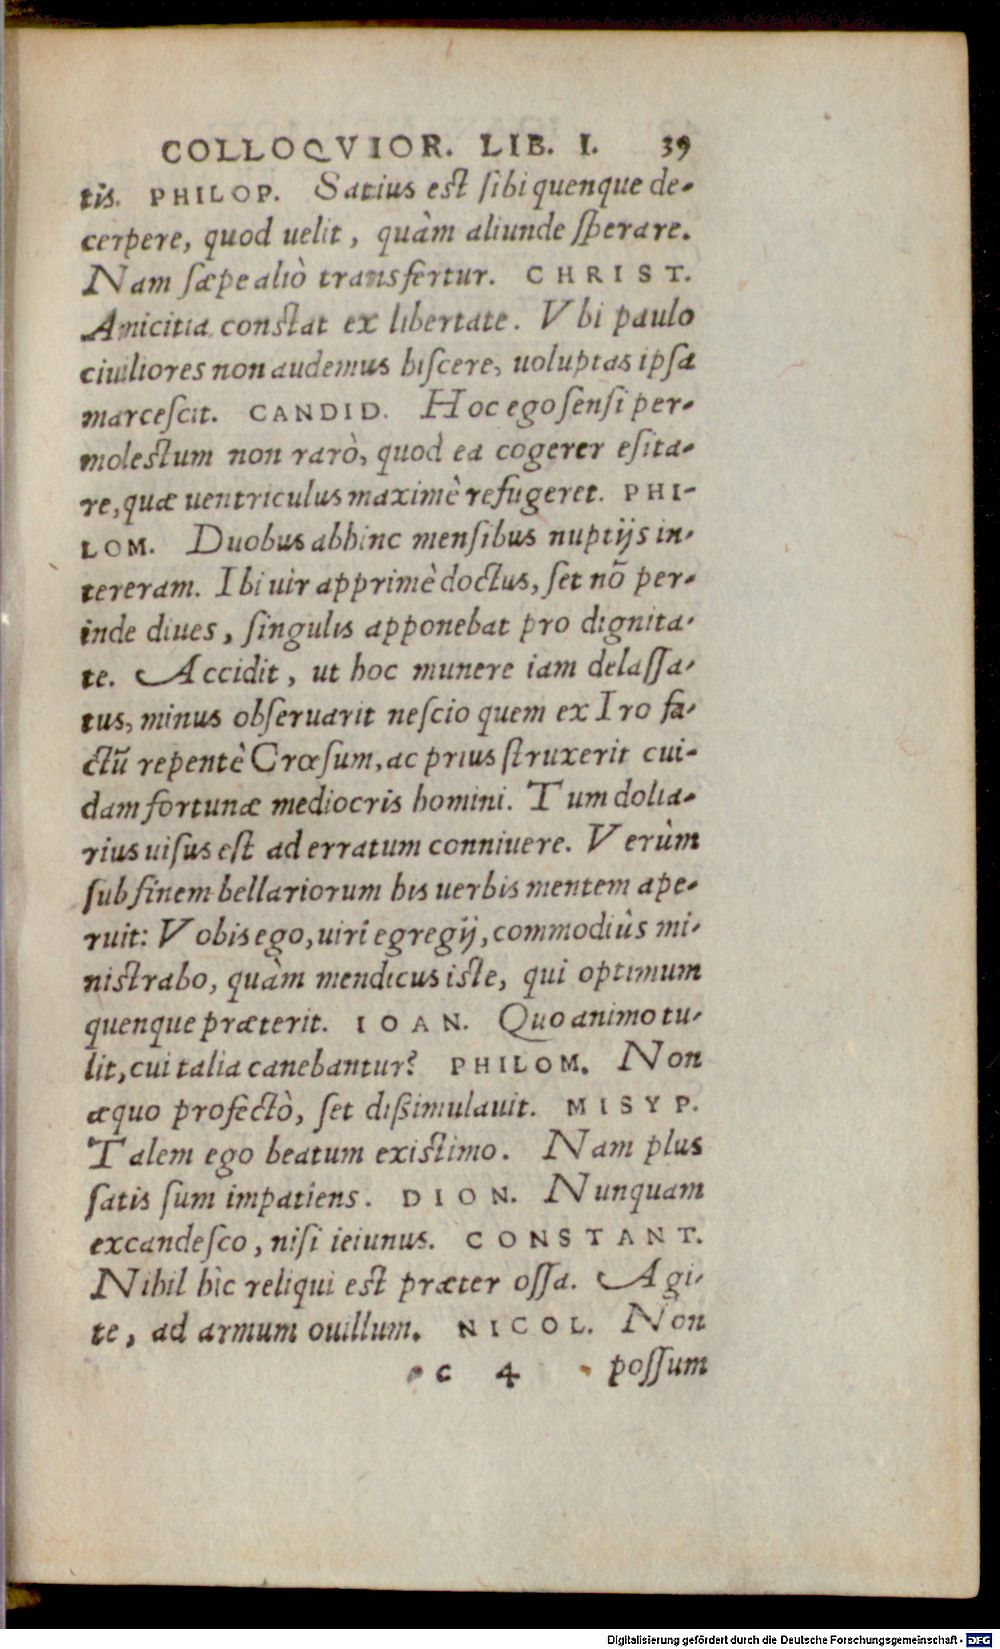 COLLOQVIOR. LIB. I. 39
tis. PHILOP. Satius est sibi quenque de-
cerpere, quod uelit, quàm aliunde sperare.
Nam sæpe aliò transfertur. CHRIST.
Amicitia constat ex libertate. Vbi paulo
ciuiliores non audemus hiscere, uoluptas ipsa
marcescit. CANDID. Hoc ego sensi per-
molestum non rarò, quod ea cogerer esita-
re, quæ uentriculus maximè refugeret. PHI-
LOM. Duobus abhinc mensibus nuptijs in-
tereram. Ibi uir apprimè doctus, set nõ per-
inde diues, singulis apponebat pro dignita-
te. Accidit, ut hoc munere iam delassa-
tus, minus obseruarit nescio quem ex Iro fa-
ctũ repentè Crœsum, ac prius struxerit cui-
dam fortunæ mediocris homini. Tum dolia-
rius uisus est ad erratum conniuere. Verùm
sub finem bellariorum his uerbis mentem ape-
ruit: Vobis ego, uiri egregij, commodiùs mi-
nistrabo, quàm mendicus iste, qui optimum
quenque præterit. IOAN. Quo animo tu-
lit, cui talia canebantur? PHILOM. Non
æquo profectò, set dißimulauit. MISYP.
Talem ego beatum existimo. Nam plus
satis sum impatiens. DION. Nunquam
excandesco, nisi ieiunus. CONSTANT.
Nihil hìc reliqui est præter ossa. Agi-
te, ad armum ouillum. NICOL. Non
c 4 possum
Digitalisierung gefördert durch die Deutsche Forschungsgemeinschaft - DFG